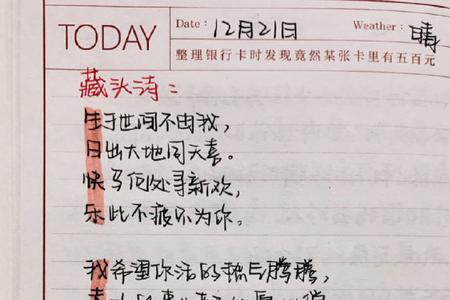 TODAY
Date: 12月21日
Weather: 晴
整理银行卡时发现竟然某张卡里有五百元
藏头诗：
生于世间不由我，
日出大地同天喜。
快马何处寻新欢，
乐此不疲为你。
我希望你活的热气腾腾，